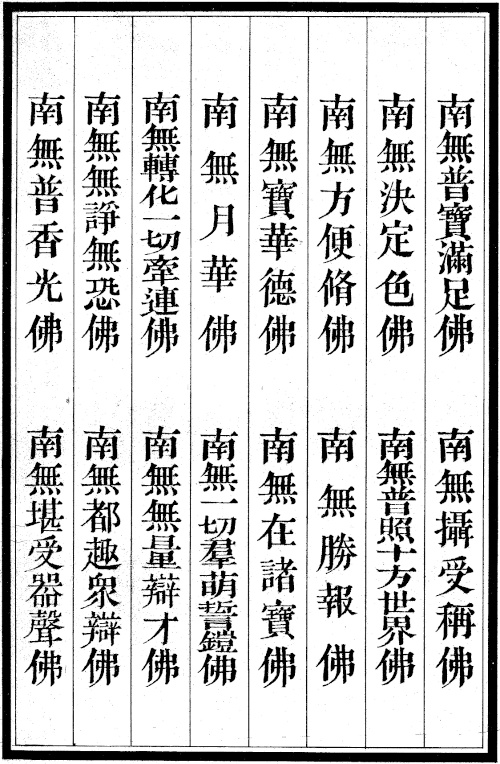 南無普寶滿足佛　南無攝受稱佛
南無決定色佛　南無普照十方世界佛
南無方便脩佛　南無勝報佛
南無寶華德佛　南無在諸寶佛
南無月華佛　南無一切羣萌誓鎧佛
南無轉化一切牽連佛　南無無量辯才佛
南無無諍無恐佛　南無都趣衆辯佛
南無普香光佛　南無堪受器聲佛